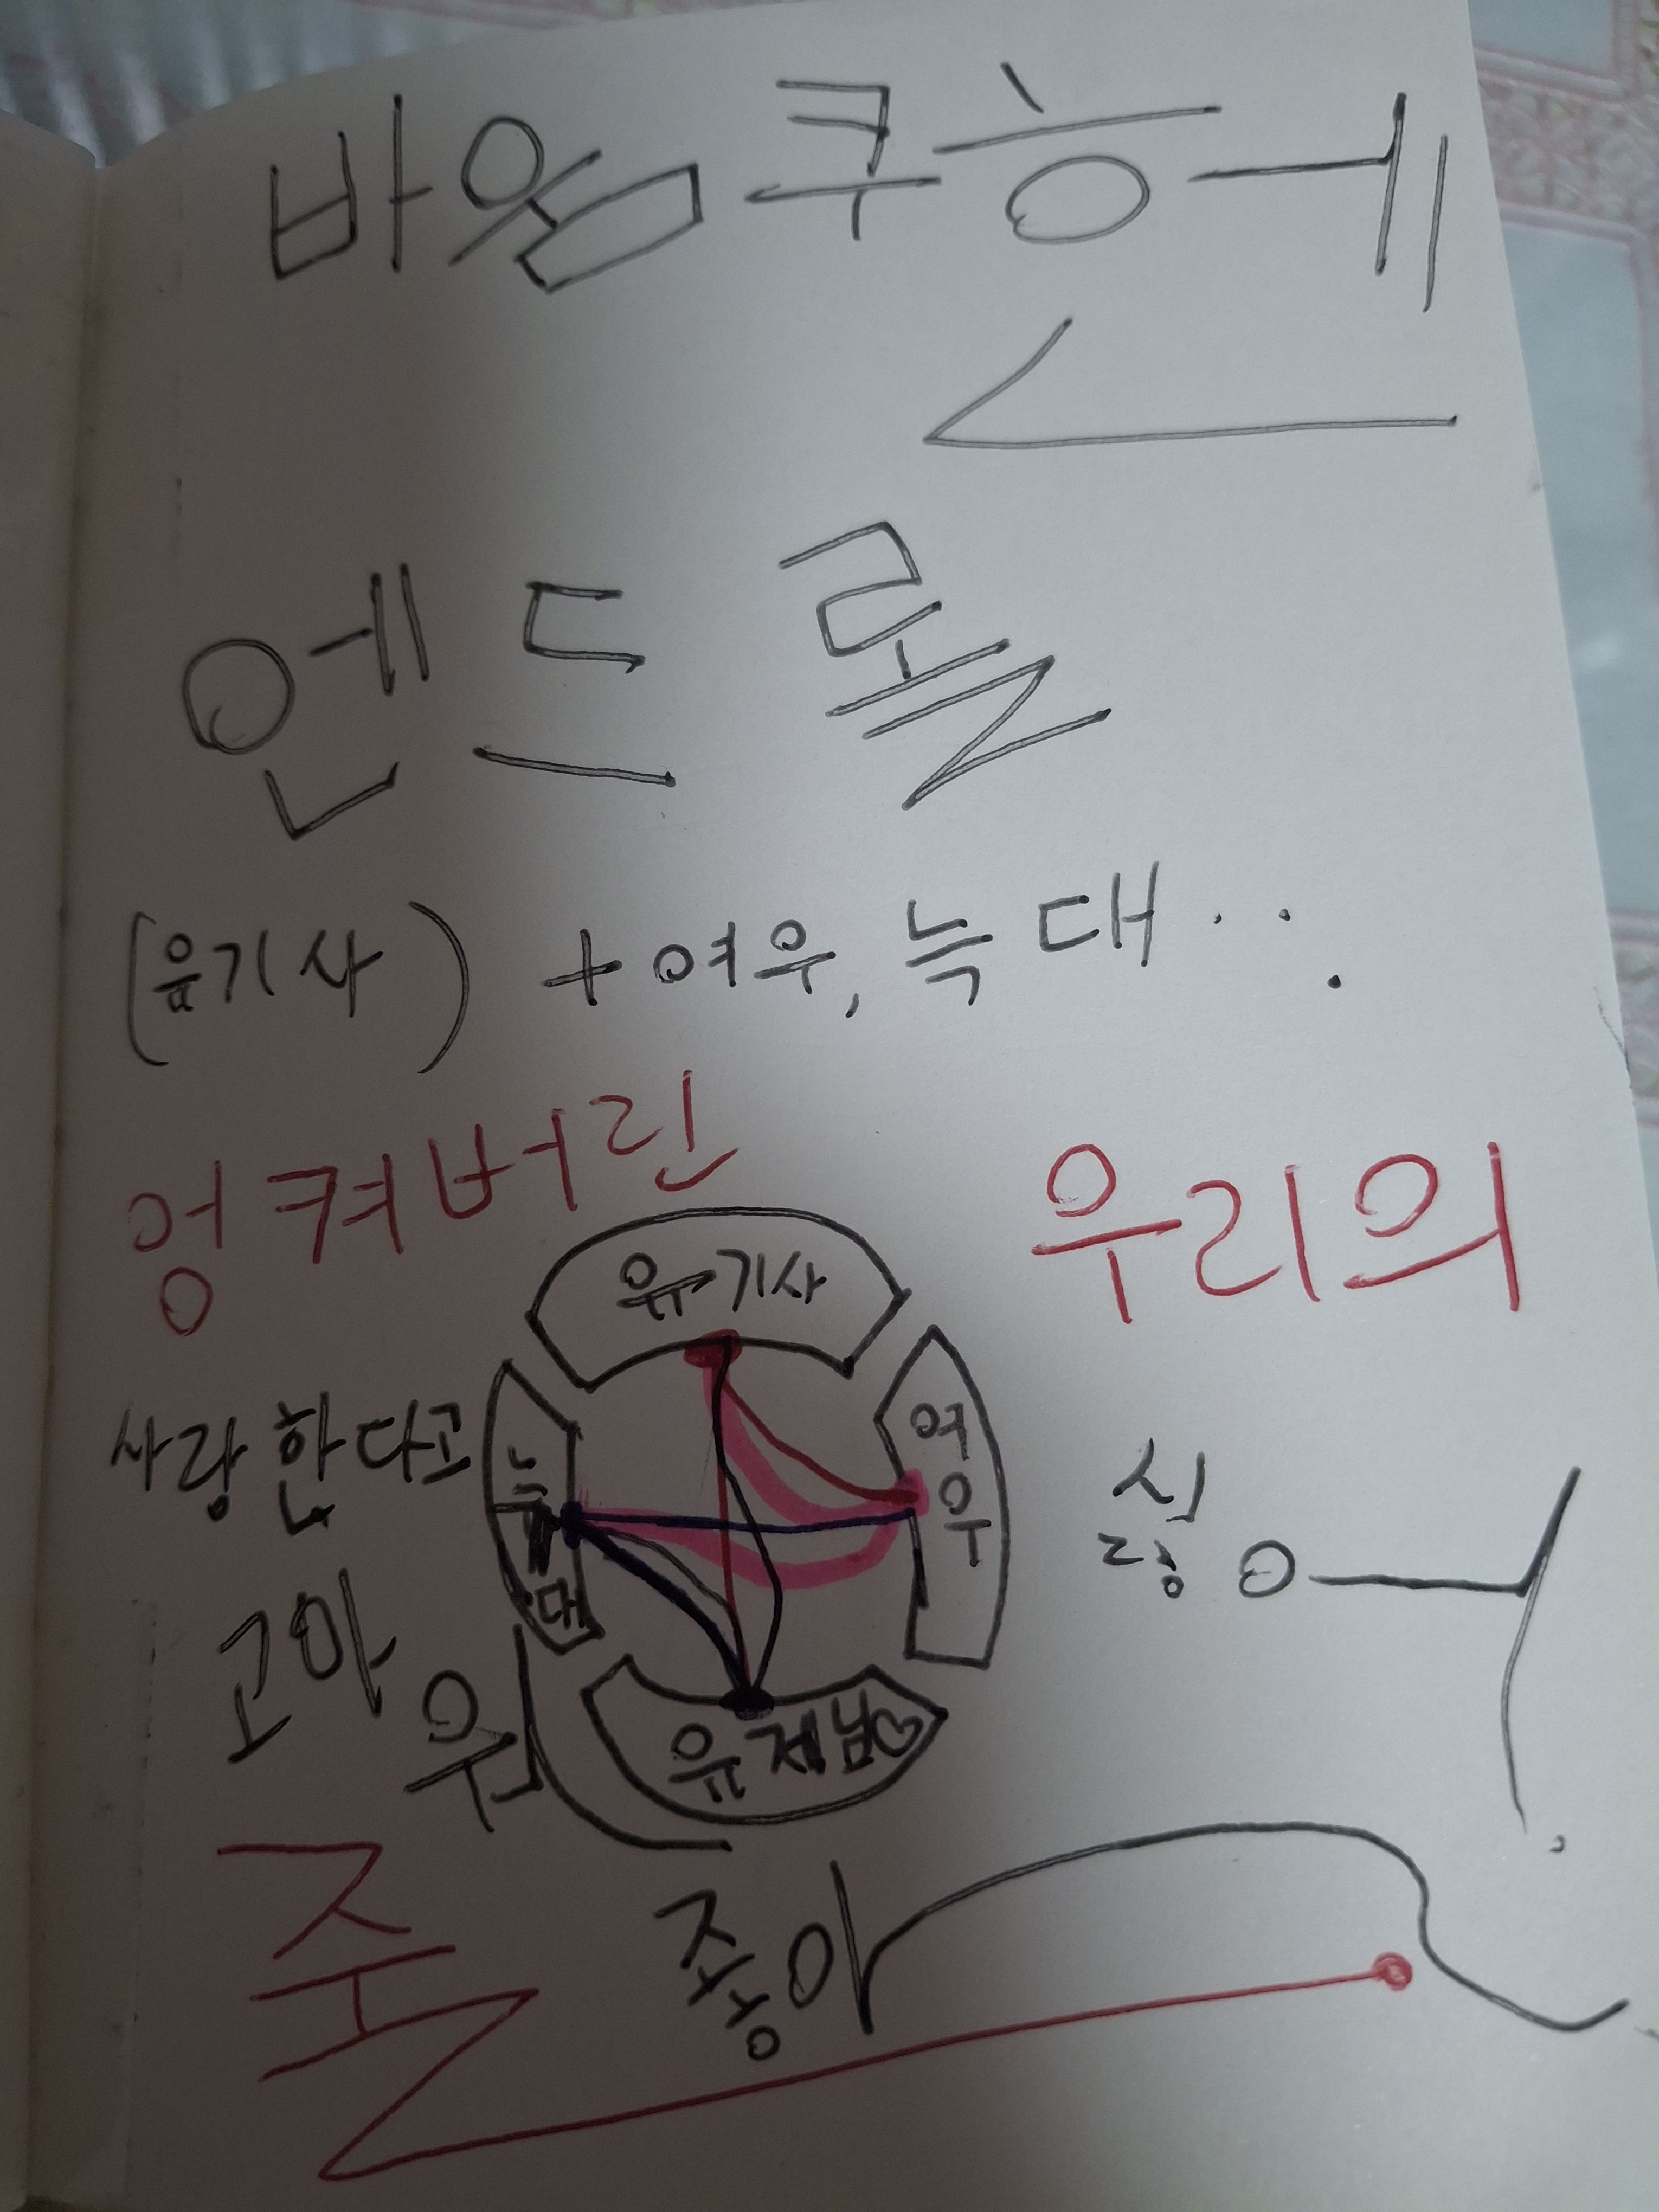 바움쿠헨
엔드롤
+여우, 늑대...
엉켜버린 우리의
유기사
사랑한다고 늑대 여우 싫어.
고마워
유저님♡
줄 좋아